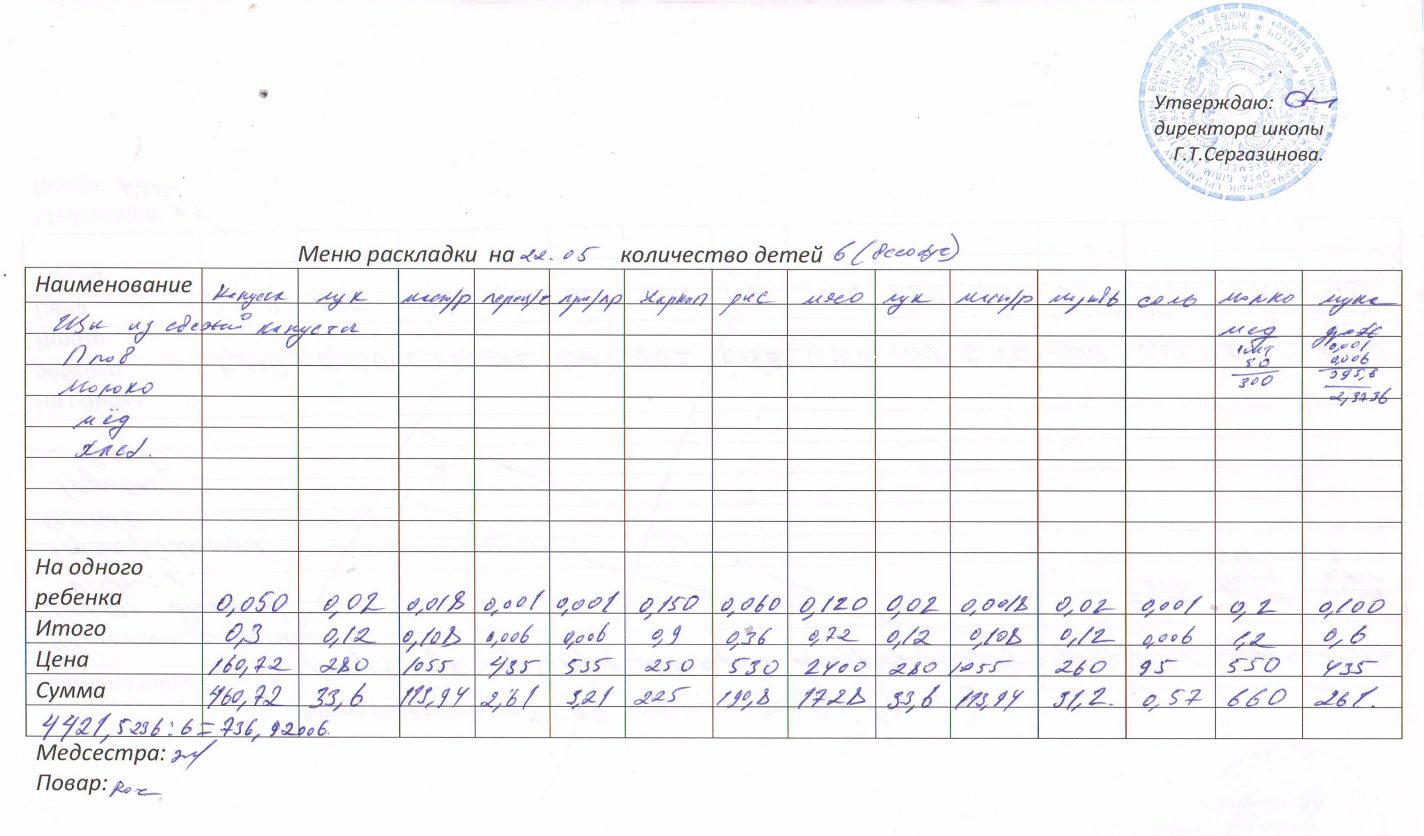 Утверждаю:
директора школы
Г.Т.Сергазинова.
Меню раскладки на 22.05 количество детей 6 (всеобуч)
Наименование Капуста лук масл/р перец/ч при/пр Картоп рис мясо лук масл/р морковь соль молоко мука
Щи из свежой капусты мёд
Плов 0,001
Молоко 50 0,006
мёд 300 395,6
хлеб. 2,3736
На одного
ребенка 0,050 0,02 0,018 0,001 0,001 0,150 0,060 0,120 0,02 0,0018 0,02 0,001 0,2 0,100
Итого 0,3 0,12 0,108 0,006 0,006 0,9 0,36 0,72 0,12 0,108 0,12 0,006 1,2 0,6
Цена 160,72 280 1055 435 535 250 530 2400 280 1055 260 95 550 435
Сумма 460,72 33,6 113,94 2,61 3,21 225 190,8 1728 33,6 113,94 31,2. 0,57 660 261.
4421,5236 : 6 = 736,92006.
Медсестра:
Повар: